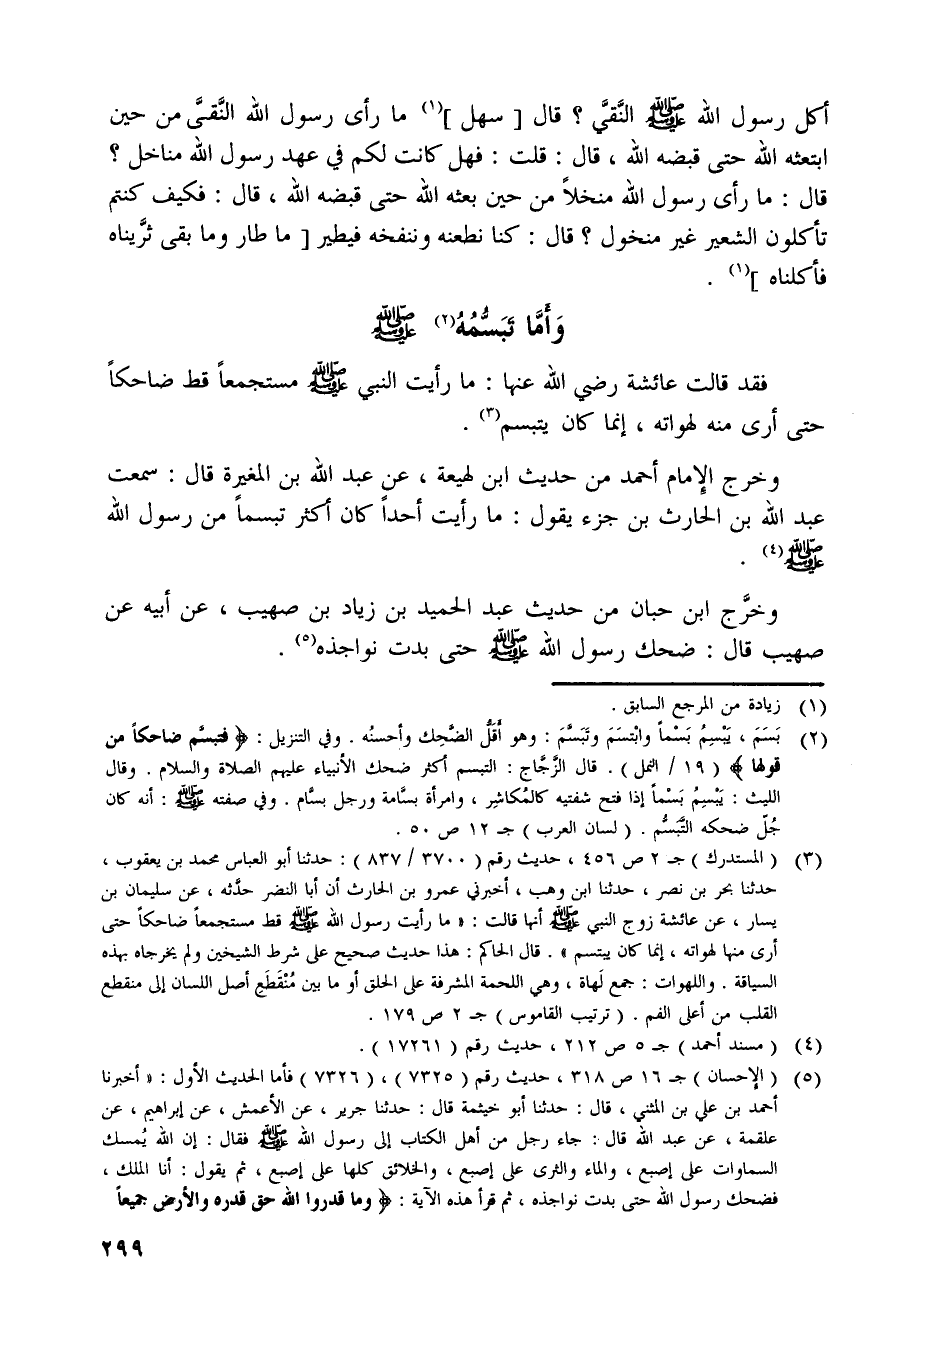 أكل رسول الله ﷺ النَّقيَّ ؟ قال [ سهل ](١) ما رأى رسول الله النَّقيَّ من حين
ابتعثه الله حتى قبضه الله ، قال : قلت : فهل كانت لكم في عهد رسول الله مناخل ؟
قال : ما رأى رسول الله منخلاً من حين بعثه الله حتى قبضه الله ، قال : فكيف كنتم
تأكلون الشعير غير منخول ؟ قال : كنا نطعنه وننفخه فيطير [ ما طار وما بقى ثرَّيناه
فأكلناه ](١) .
وَأَمَّا تَبَسُّمُهُ(٢) ﷺ
فقد قالت عائشة رضي الله عنها : ما رأيت النبي ﷺ مستجمعاً قط ضاحكاً
حتى أرى منه لهواته ، إنما كان يتبسم(٣) .
وخرج الإمام أحمد من حديث ابن لهيعة ، عن عبد الله بن المغيرة قال : سمعت
عبد الله بن الحارث بن جزء يقول : ما رأيت أحداً كان أكثر تبسماً من رسول الله
ﷺ(٤) .
وخرَّج ابن حبان من حديث عبد الحميد بن زياد بن صهيب ، عن أبيه عن
صهيب قال : ضحك رسول الله ﷺ حتى بدت نواجذه(٥) .
(١) زيادة من المرجع السابق .
(٢) بَسَمَ ، يَبْسِمُ بَسْماً وابْتسَمَ وتَبَسَّمَ : وهو أَقَلُّ الضَّحِك وأحسنُه . وفي التنزيل : ﴿ فتبسَّم ضاحكاً من
قولها ﴾ ( ١٩ / النمل ) . قال الزَّجَّاج : التبسم أكثر ضحك الأنبياء عليهم الصلاة والسلام . وقال
الليث : يَبْسِمُ بَسْماً إذا فتح شفتيه كالمُكاشِر ، وامرأة بسَّامة ورجل بسَّام . وفي صفته ﷺ : أنه كان
جُلّ ضحكه التَّبَسُّم . ( لسان العرب ) جـ ١٢ ص ٥٠ .
(٣) ( المستدرك ) جـ ٢ ص ٤٥٦ ، حديث رقم ( ٣٧٠٠ / ٨٣٧ ) : حدثنا أبو العباس محمد بن يعقوب ،
حدثنا بحر بن نصر ، حدثنا ابن وهب ، أخبرني عمرو بن الحارث أن أبا النضر حدَّثه ، عن سليمان بن
يسار ، عن عائشة زوج النبي ﷺ أنها قالت : « ما رأيت رسول الله ﷺ قط مستجمعاً ضاحكاً حتى
أرى منها لهواته ، إنما كان يبتسم » . قال الحاكم : هذا حديث صحيح على شرط الشيخين ولم يخرجاه بهذه
السياقة . واللهوات : جمع لَهاة ، وهي اللحمة المشرفة على الحلق أو ما بين مُنْقَطَع أصل اللسان إلى منقطع
القلب من أعلى الفم . ( ترتيب القاموس ) جـ ٢ ص ١٧٩ .
(٤) ( مسند أحمد ) جـ ٥ ص ٢١٢ ، حديث رقم ( ١٧٢٦١ ) .
(٥) ( الإحسان ) جـ ١٦ ص ٣١٨ ، حديث رقم ( ٧٣٢٥ ) ، ( ٧٣٢٦ ) فأما الحديث الأول : « أخبرنا
أحمد بن علي بن المثني ، قال : حدثنا أبو خيثمة قال : حدثنا جرير ، عن الأعمش ، عن إبراهيم ، عن
علقمة ، عن عبد الله قال : جاء رجل من أهل الكتاب إلى رسول الله ﷺ فقال : إن الله يُمسك
السماوات على إصبع ، والماء والثرى على إصبع ، والخلائق كلها على إصبع ، ثم يقول : أنا الملك ،
فضحك رسول الله حتى بدت نواجذه ، ثم قرأ هذه الآية : ﴿ وما قدروا الله حق قدره والأرض جميعاً
٢٩٩